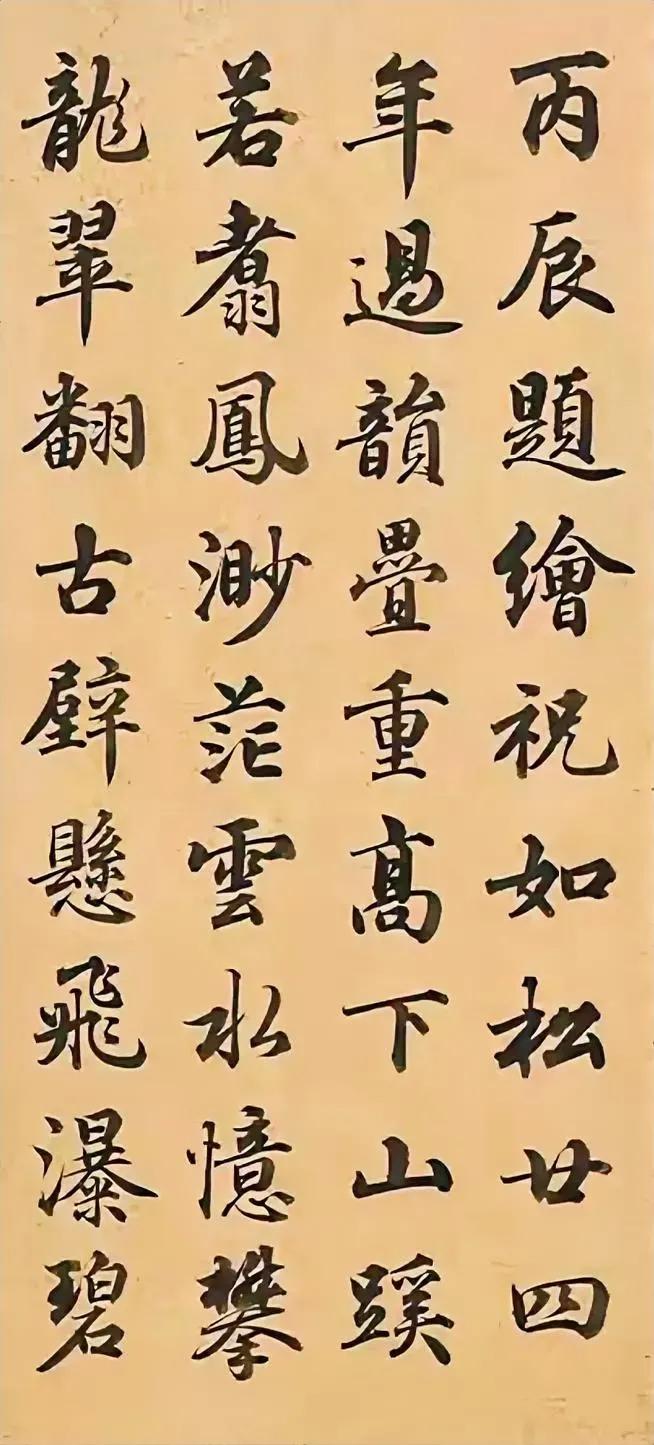 丙辰題繪祝如松廿四
年過韻疊重高下山蹊
若翥鳳渺茫雲水憶攀
龍翠翻古壁懸飛瀑碧